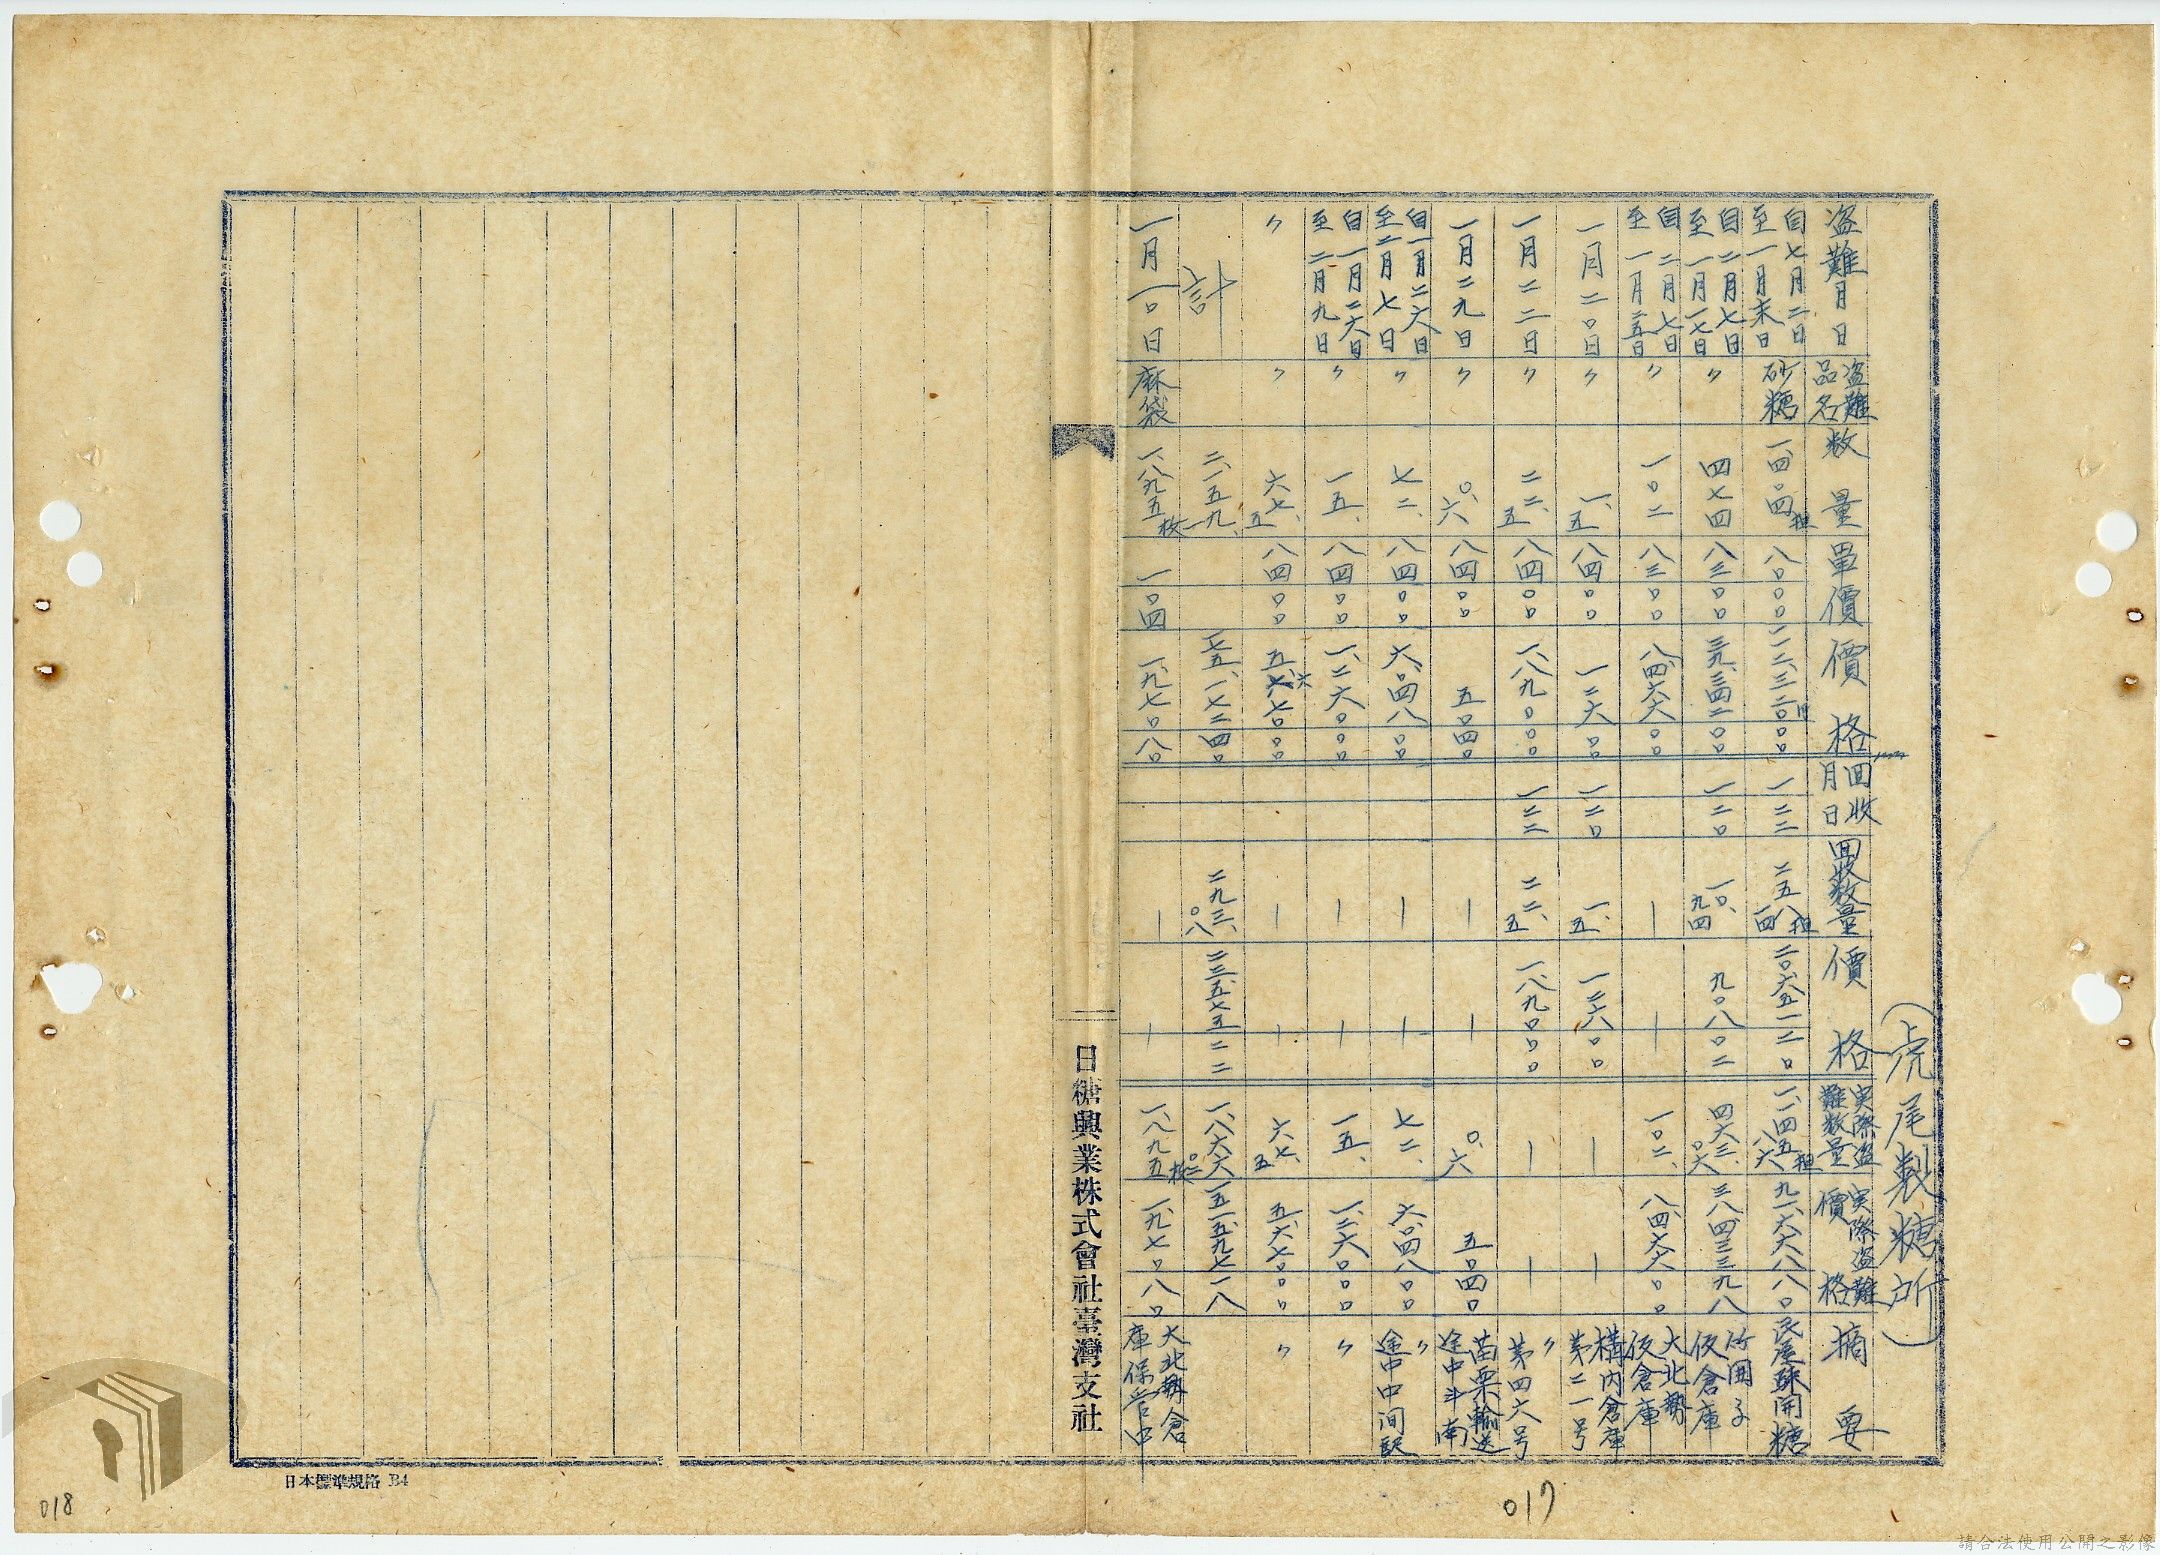 （虎尾製糖所）
盗難月日 盗難品名 数量 單價 價格 回收月日 回收数量 價格 実際盗難数量 実際盗難價格 摘要
自七月二日至一月末日 砂糖 一、四〇四担 八〇〇〇 一一二、三二〇〇〇 一二二 二五八担一四 二〇、六五一二〇 一、一四五担八六 九一、六六八八〇
自二月七日至一月一七日 〃 四七四 八三〇〇 三九、三四二〇〇 一二〇 一〇、九四 九〇八〇二 四六三、〇六 三八、四三三九八 竹囲子仮倉庫
自二月七日至一月二五日 〃 一〇二 八三〇〇 八、四六六〇〇 — — 一〇二、 八、四六六〇〇 大北勢仮倉庫
一月二〇日 〃 一、五 八四〇〇 一二六〇〇 一二〇 一、五 一二六〇〇 — — 構内倉庫第二一号
一月二二日 〃 二二、五 八四〇〇 一、八九〇〇〇 一二二 二二、五 一、八九〇〇〇 — — 〃第四六号
一月二九日 〃 〇、六 八四〇〇 五〇四〇 — — 〇、六 五〇四〇 苗栗輸送途中斗南
自一月二六日至二月七日 〃 七二、 八四〇〇 六、〇四八〇〇 — — 七二、 六、〇四八〇〇 〃途中中间駅
自一月二六日至二月九日 〃 一五、 八四〇〇 一、二六〇〇〇 — — 一五、 一、二六〇〇〇 〃
〃 〃 六七、五 八四〇〇 五、六七〇〇〇 — — 六七、五 五、六七〇〇〇 〃
計 二、一五九、一 一七五、一七二四〇 二九三、〇八 二三、五七五二二 一、八六六〇二 一五一、五九七一八
一月一〇日 麻袋 一、八九五枚 一〇四 一、九七〇八〇 — — 一、八九五枚 一、九七〇八〇 大北勢倉庫保管中
日糖興業株式會社臺灣支社
日本標準規格 B4
017
018
請合法使用公開之影像